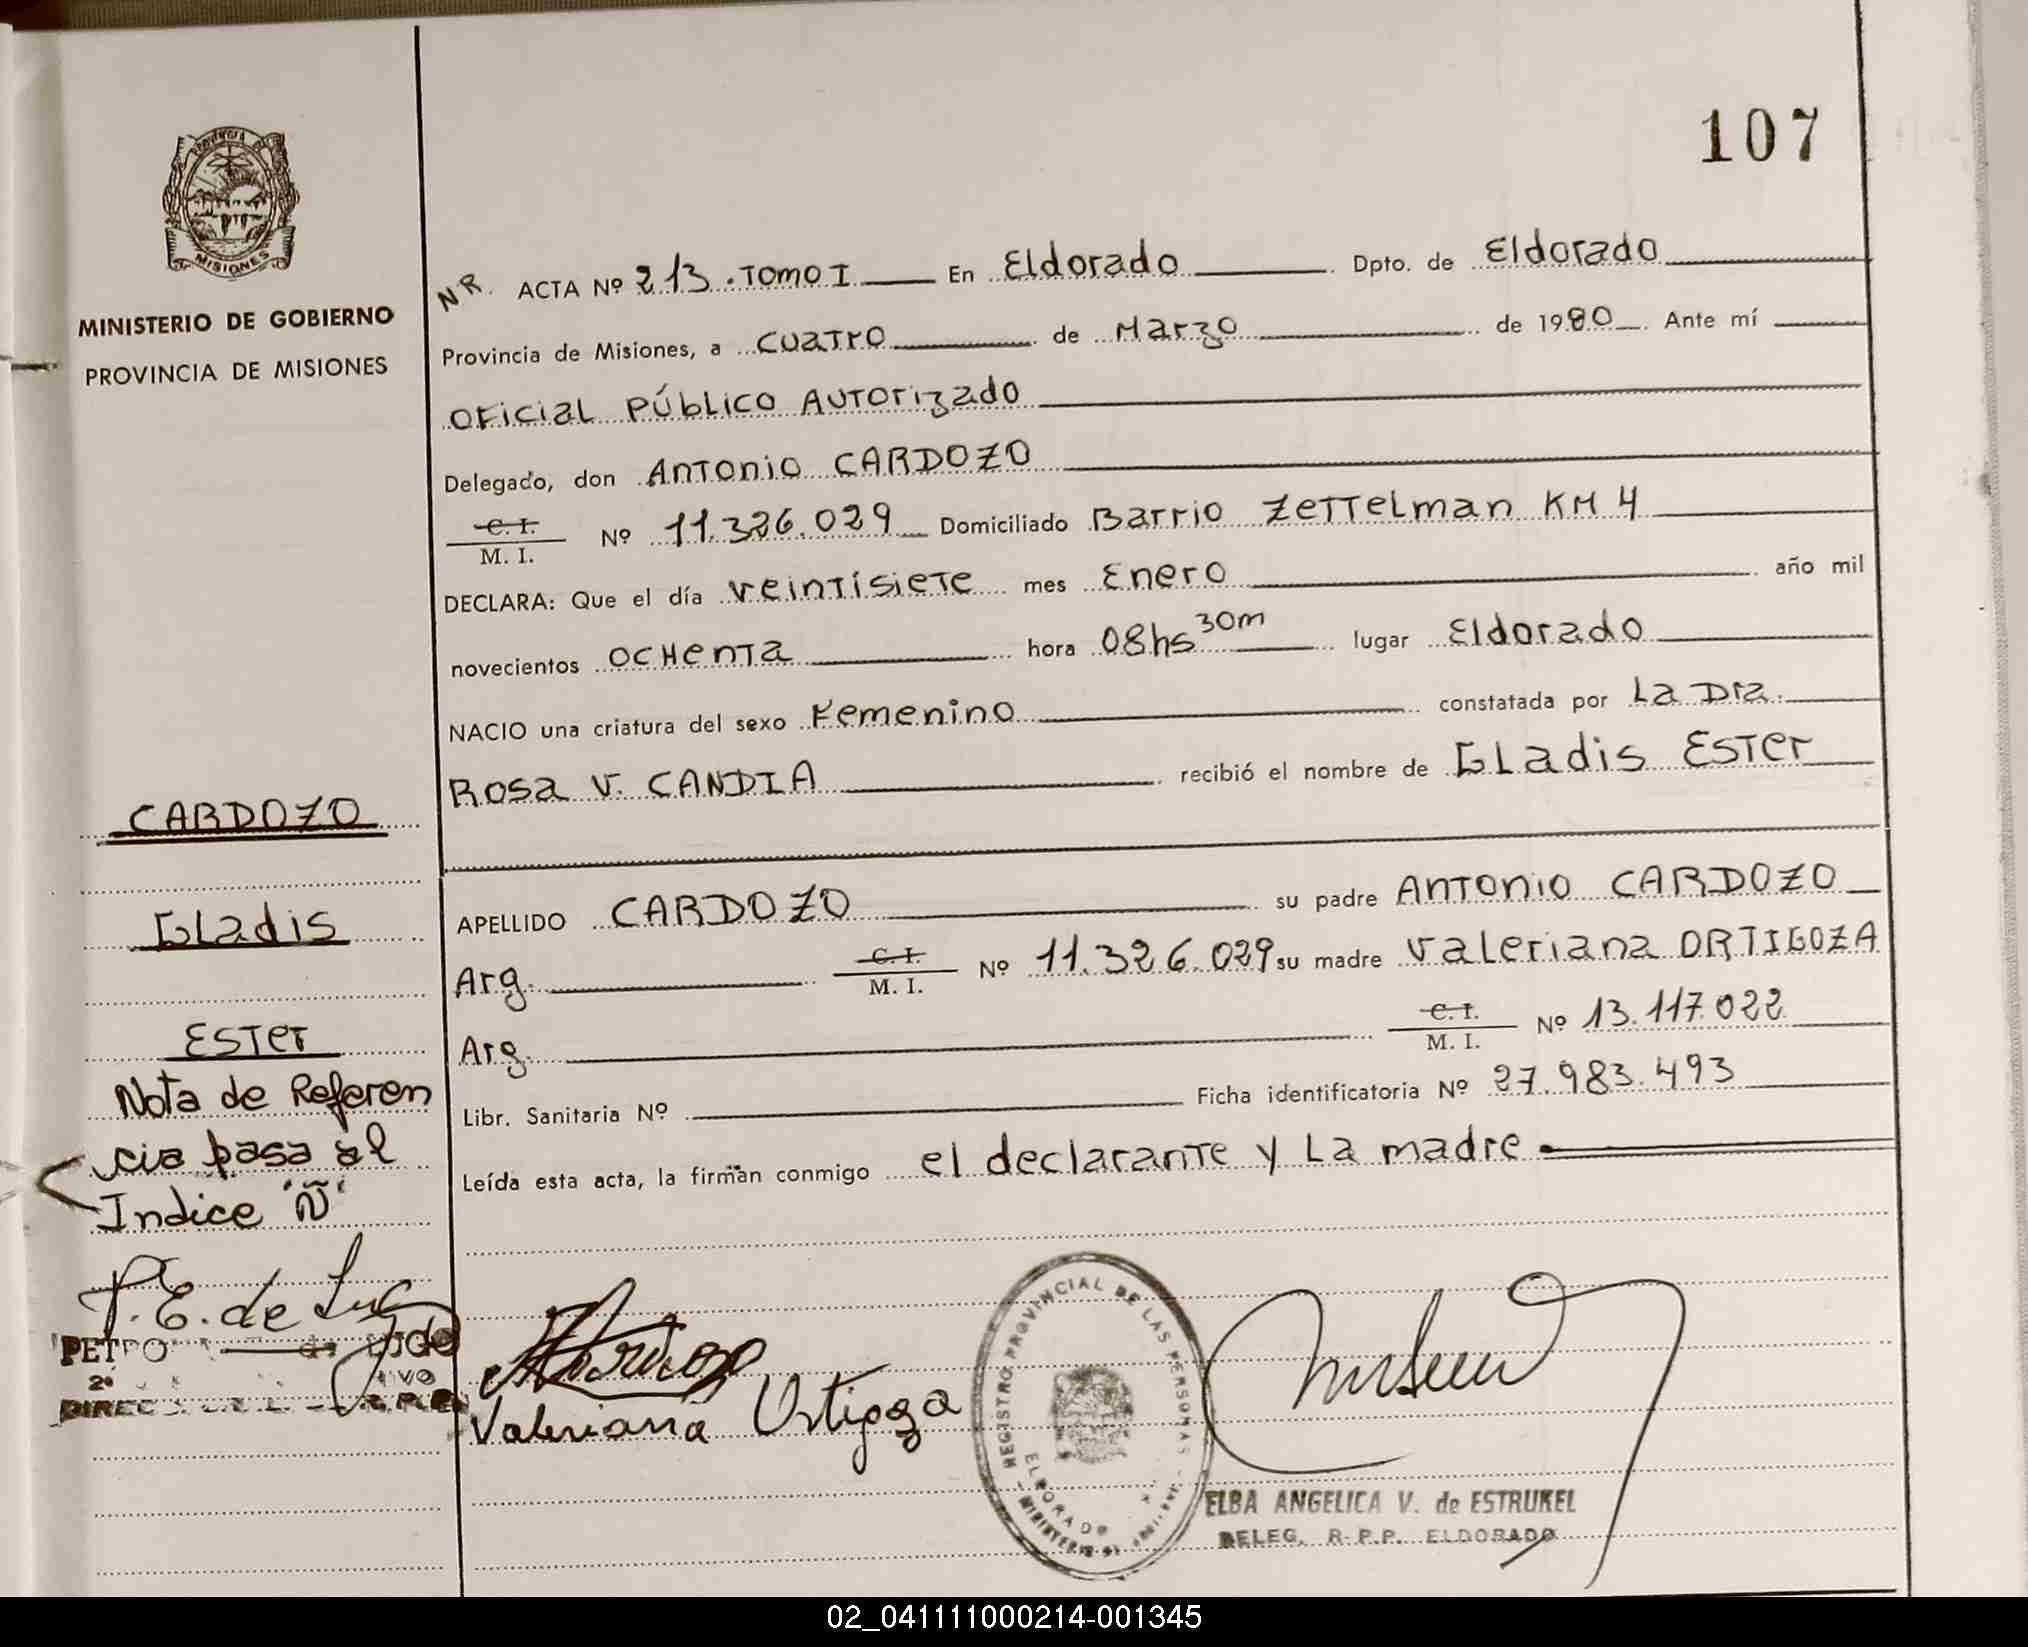 107
PROVINCIA DE
MISIONES
MINISTERIO DE GOBIERNO
PROVINCIA DE MISIONES
NR. ACTA Nº 213. TOMO I En Eldorado Dpto. de Eldorado
Provincia de Misiones, a CUATRO de Marzo de 1980. Ante mí
OFICIAL PÚBLICO AUTORIZADO
Delegado, don ANTONIO CARDOZO
C. I.
M. I. Nº 11.326.029 Domiciliado Barrio ZETTELMAN KM 4
DECLARA: Que el día VEINTISIETE mes Enero año mil
novecientos OCHENTA hora 08hs 30m lugar Eldorado
NACIO una criatura del sexo Femenino constatada por La Dra.
Rosa V. CANDIA recibió el nombre de Gladis Ester
APELLIDO CARDOZO su padre ANTONIO CARDOZO
Arg. C. I.
M. I. Nº 11.326.029 su madre Valeriana ORTIGOZA
Arg. C. I.
M. I. Nº 13.117.022
Libr. Sanitaria Nº Ficha identificatoria Nº 27.983.493
Leída esta acta, la firman conmigo el declarante y La madre
CARDOZO
Gladis
Ester
Nota de Referen
cia pasa al
Indice "Ñ"
P. E. de Lugo
PETRO LUGO
2º
DIREC
Valeriana Ortigoza
REGISTRO PROVINCIAL DE LAS PERSONAS
ELDORADO
ELBA ANGELICA V. de ESTRUKEL
DELEG. R.P.P. ELDORADO
02_041111000214-001345